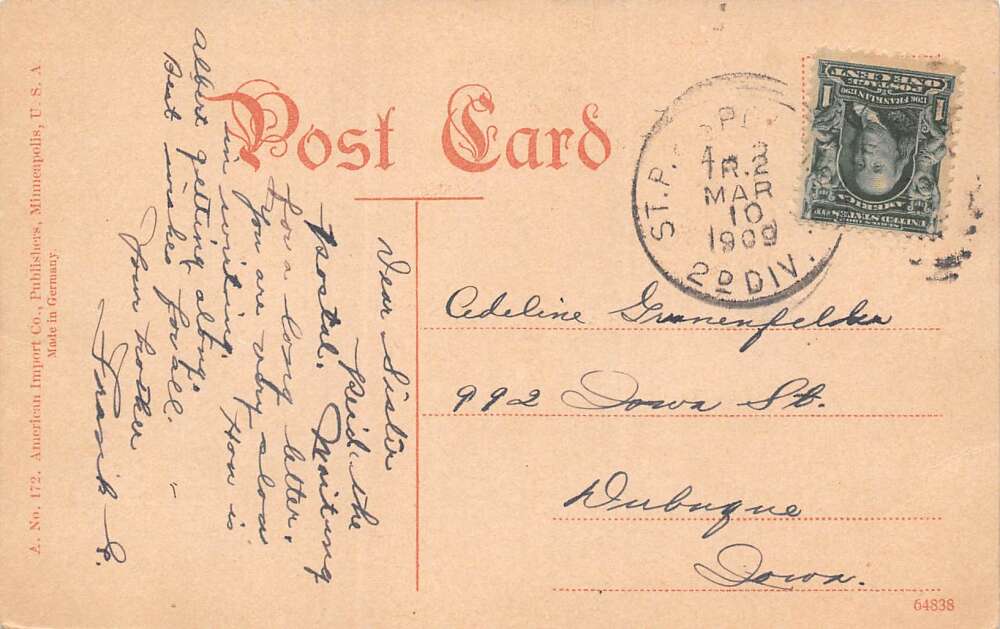 Post Card
ONE CENT
POSTAGE
1706 FRANKLIN 1790
1 1
UNITED STATES OF
AMERICA
ST. P.
TR. 2
MAR
10
1909
2D DIV.
Dear Sister
Rec'd the
postal. Waiting
for a long letter.
You are very slow
in writing. How is
Albert getting along?
Best wishes for all.
Your brother
Frank G.
Adeline Grunenfelder
992 Iowa St.
Dubuque
Iowa.
A. No. 172. American Import Co., Publishers, Minneapolis, U. S. A
Made in Germany.
64838